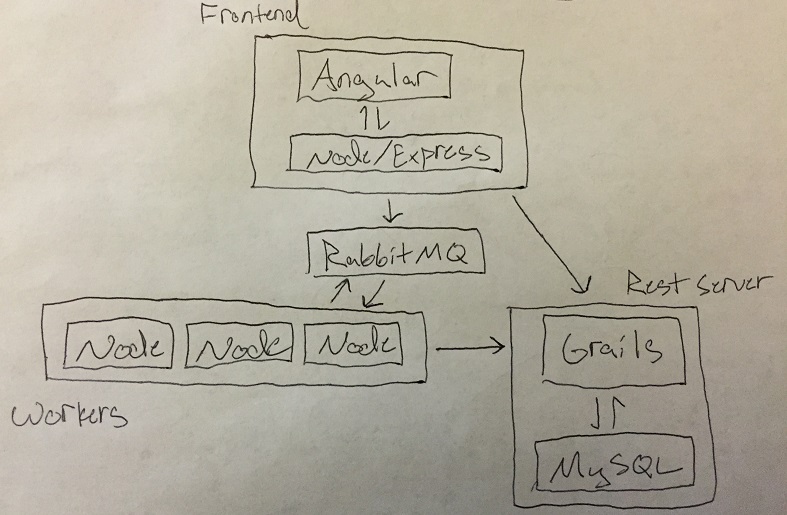 Frontend
Angular
Node/Express
RabbitMQ
Rest Server
Node Node Node
Grails
Workers
MySQL